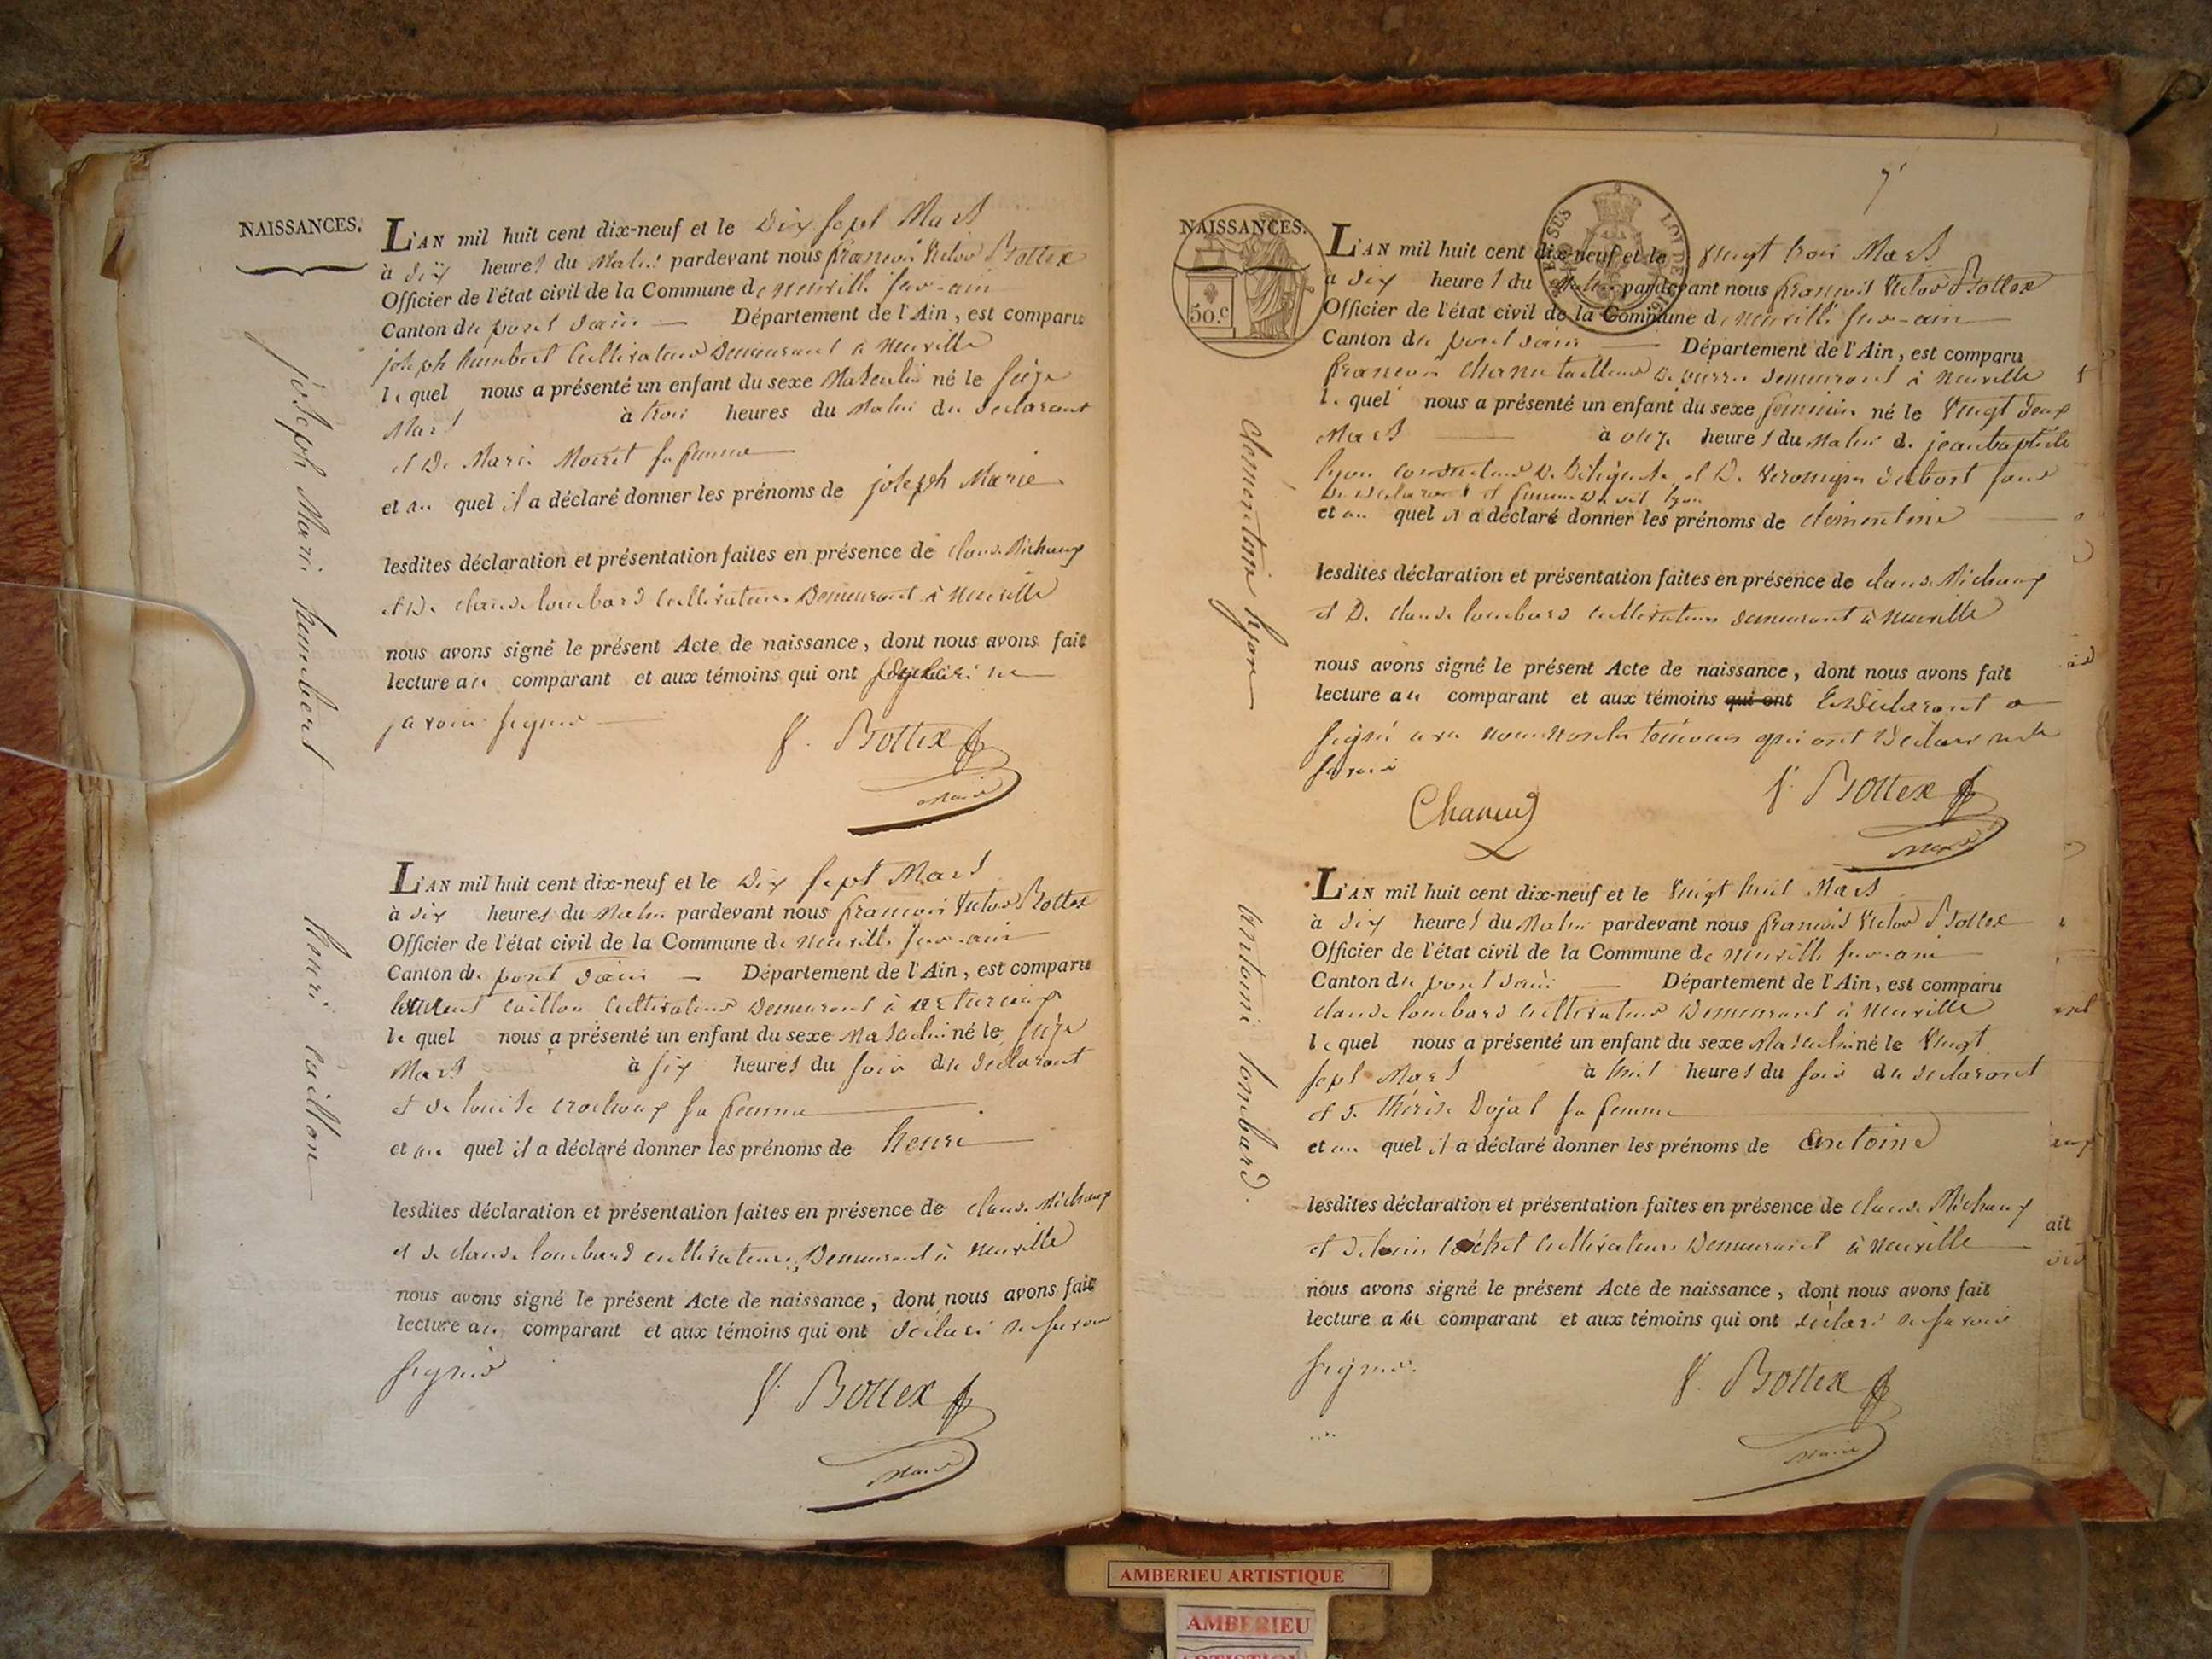 NAISSANCES.
L'AN mil huit cent dix-neuf et le Dix Sept Mars
à dix heures du Matin pardevant nous françois Victor Bottex
Officier de l'état civil de la Commune de neuville sur-ain
Canton du pont dain — Département de l'Ain, est comparu
joseph humbert Cultivateur Demeurant à Neuville
lequel nous a présenté un enfant du sexe Masculin né le seize
Mars à trois heures du Matin du declarant
et De Marie Moiret sa femme
et au quel il a déclaré donner les prénoms de joseph Marie
lesdites déclaration et présentation faites en présence de claude Michaux
et De claude lombard cultivateurs Demeurant à Neuville
nous avons signé le présent Acte de naissance, dont nous avons fait
lecture au comparant et aux témoins qui ont déclaré ne
savoir signer
V. Bottex
Maire
joseph Marie humbert
L'AN mil huit cent dix-neuf et le Dix sept Mars
à dix heures du Matin pardevant nous françois Victor Bottex
Officier de l'état civil de la Commune de neuville sur-ain
Canton du pont dain — Département de l'Ain, est comparu
caillon cultivateur Demeurant à
lequel nous a présenté un enfant du sexe Masculin né le seize
Mars à six heures du soir du declarant
et de louise crochoux sa femme
et au quel il a déclaré donner les prénoms de henri
lesdites déclaration et présentation faites en présence de claude Michaux
et de claude lombard cultivateurs Demeurant à Neuville
nous avons signé le présent Acte de naissance, dont nous avons fait
lecture au comparant et aux témoins qui ont déclaré ne savoir
signer
V. Bottex
Maire
henri caillon
7
NAISSANCES.
50.c
L'AN mil huit cent dix-neuf et le Vingt trois Mars
à dix heures du Matin pardevant nous françois Victor Bottex
Officier de l'état civil de la Commune de neuville sur-ain
Canton du pont dain — Département de l'Ain, est comparu
françois chanut tailleur de pierre demeurant à Neuville
lequel nous a présenté un enfant du sexe feminin né le Vingt deux
Mars à onze heures du Matin de jean baptiste
lyon conducteur de diligente et De Veronique
du declarant et femme du dit lyon
et au quel il a déclaré donner les prénoms de clementine
lesdites déclaration et présentation faites en présence de claude Michaux
et De claude lombard cultivateurs demeurant à Neuville
nous avons signé le présent Acte de naissance, dont nous avons fait
lecture au comparant et aux témoins qui ont Le déclarant a
signé avec nous non les témoins qui ont Déclaré ne le
savoir
Chanut
V. Bottex
Maire
clémentine lyon
L'AN mil huit cent dix-neuf et le Vingt huit Mars
à dix heures du Matin pardevant nous françois Victor Bottex
Officier de l'état civil de la Commune de neuville sur-ain
Canton du pont dain — Département de l'Ain, est comparu
claude lombard cultivateur Demeurant à Neuville
lequel nous a présenté un enfant du sexe Masculin né le Vingt
sept Mars à huit heures du soir du declarant
et de Thérèse Dujat sa femme
et au quel il a déclaré donner les prénoms de Antoine
lesdites déclaration et présentation faites en présence de claude Michaux
et De louis cultivateurs Demeurant à Neuville
nous avons signé le présent Acte de naissance, dont nous avons fait
lecture au comparant et aux témoins qui ont déclaré ne savoir
signer.
V. Bottex
Maire
antoine lombard.
ait
AMBERIEU ARTISTIQUE
AMBERIEU
ARTISTIQUE